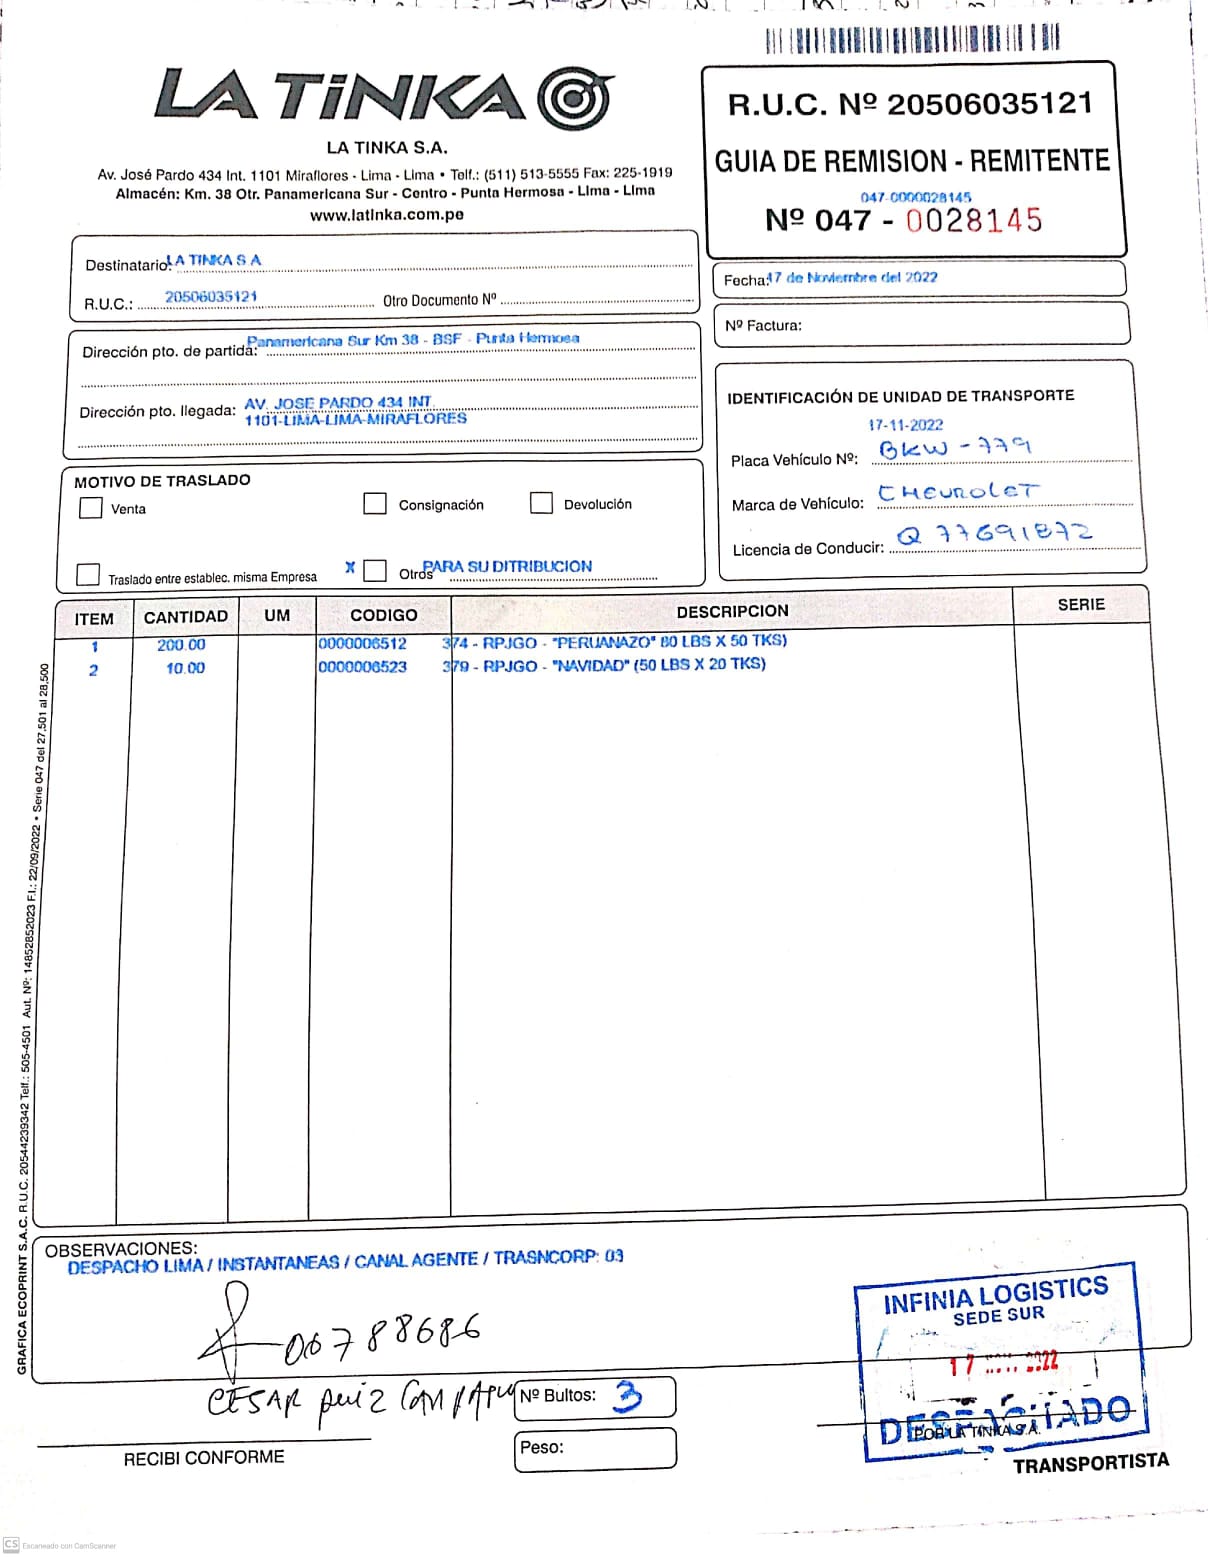 LA TiNKA
LA TINKA S.A.
Av. José Pardo 434 Int. 1101 Miraflores - Lima - Lima • Telf.: (511) 513-5555 Fax: 225-1919
Almacén: Km. 38 Otr. Panamericana Sur - Centro - Punta Hermosa - Lima - Lima
www.latinka.com.pe
R.U.C. Nº 20506035121
GUIA DE REMISION - REMITENTE
047-0000028145
Nº 047 - 0028145
Destinatario: LA TINKA S A
R.U.C.: 20506035121 Otro Documento Nº
Fecha: 17 de Noviembre del 2022
Nº Factura:
Dirección pto. de partida: Panamericana Sur Km 38 - BSF - Punta Hermosa
Dirección pto. llegada: AV. JOSE PARDO 434 INT.
1101-LIMA-LIMA-MIRAFLORES
IDENTIFICACIÓN DE UNIDAD DE TRANSPORTE
17-11-2022
Placa Vehículo Nº: BKW-779
Marca de Vehículo: CHEVROLET
Licencia de Conducir: Q 77691872
MOTIVO DE TRASLADO
Venta Consignación Devolución
Traslado entre establec. misma Empresa X Otros PARA SU DITRIBUCION
ITEM CANTIDAD UM CODIGO DESCRIPCION SERIE
1 200.00 0000006512 374 - RPJGO - "PERUANAZO" 80 LBS X 50 TKS)
2 10.00 0000006523 379 - RPJGO - "NAVIDAD" (50 LBS X 20 TKS)
GRAFICA ECOPRINT S.A.C. R.U.C. 20544239342 Telf.: 505-4501 Aut. Nº: 14852852023 F.I.: 22/09/2022 • Serie 047 del 27,501 al 28,500
OBSERVACIONES:
DESPACHO LIMA / INSTANTANEAS / CANAL AGENTE / TRASNCORP: 03
06788686
CESAR RUIZ
Nº Bultos: 3
Peso:
RECIBI CONFORME
INFINIA LOGISTICS
SEDE SUR
17 2022
DESPACHADO
POR LA TINKA S.A.
TRANSPORTISTA
CS Escaneado con CamScanner